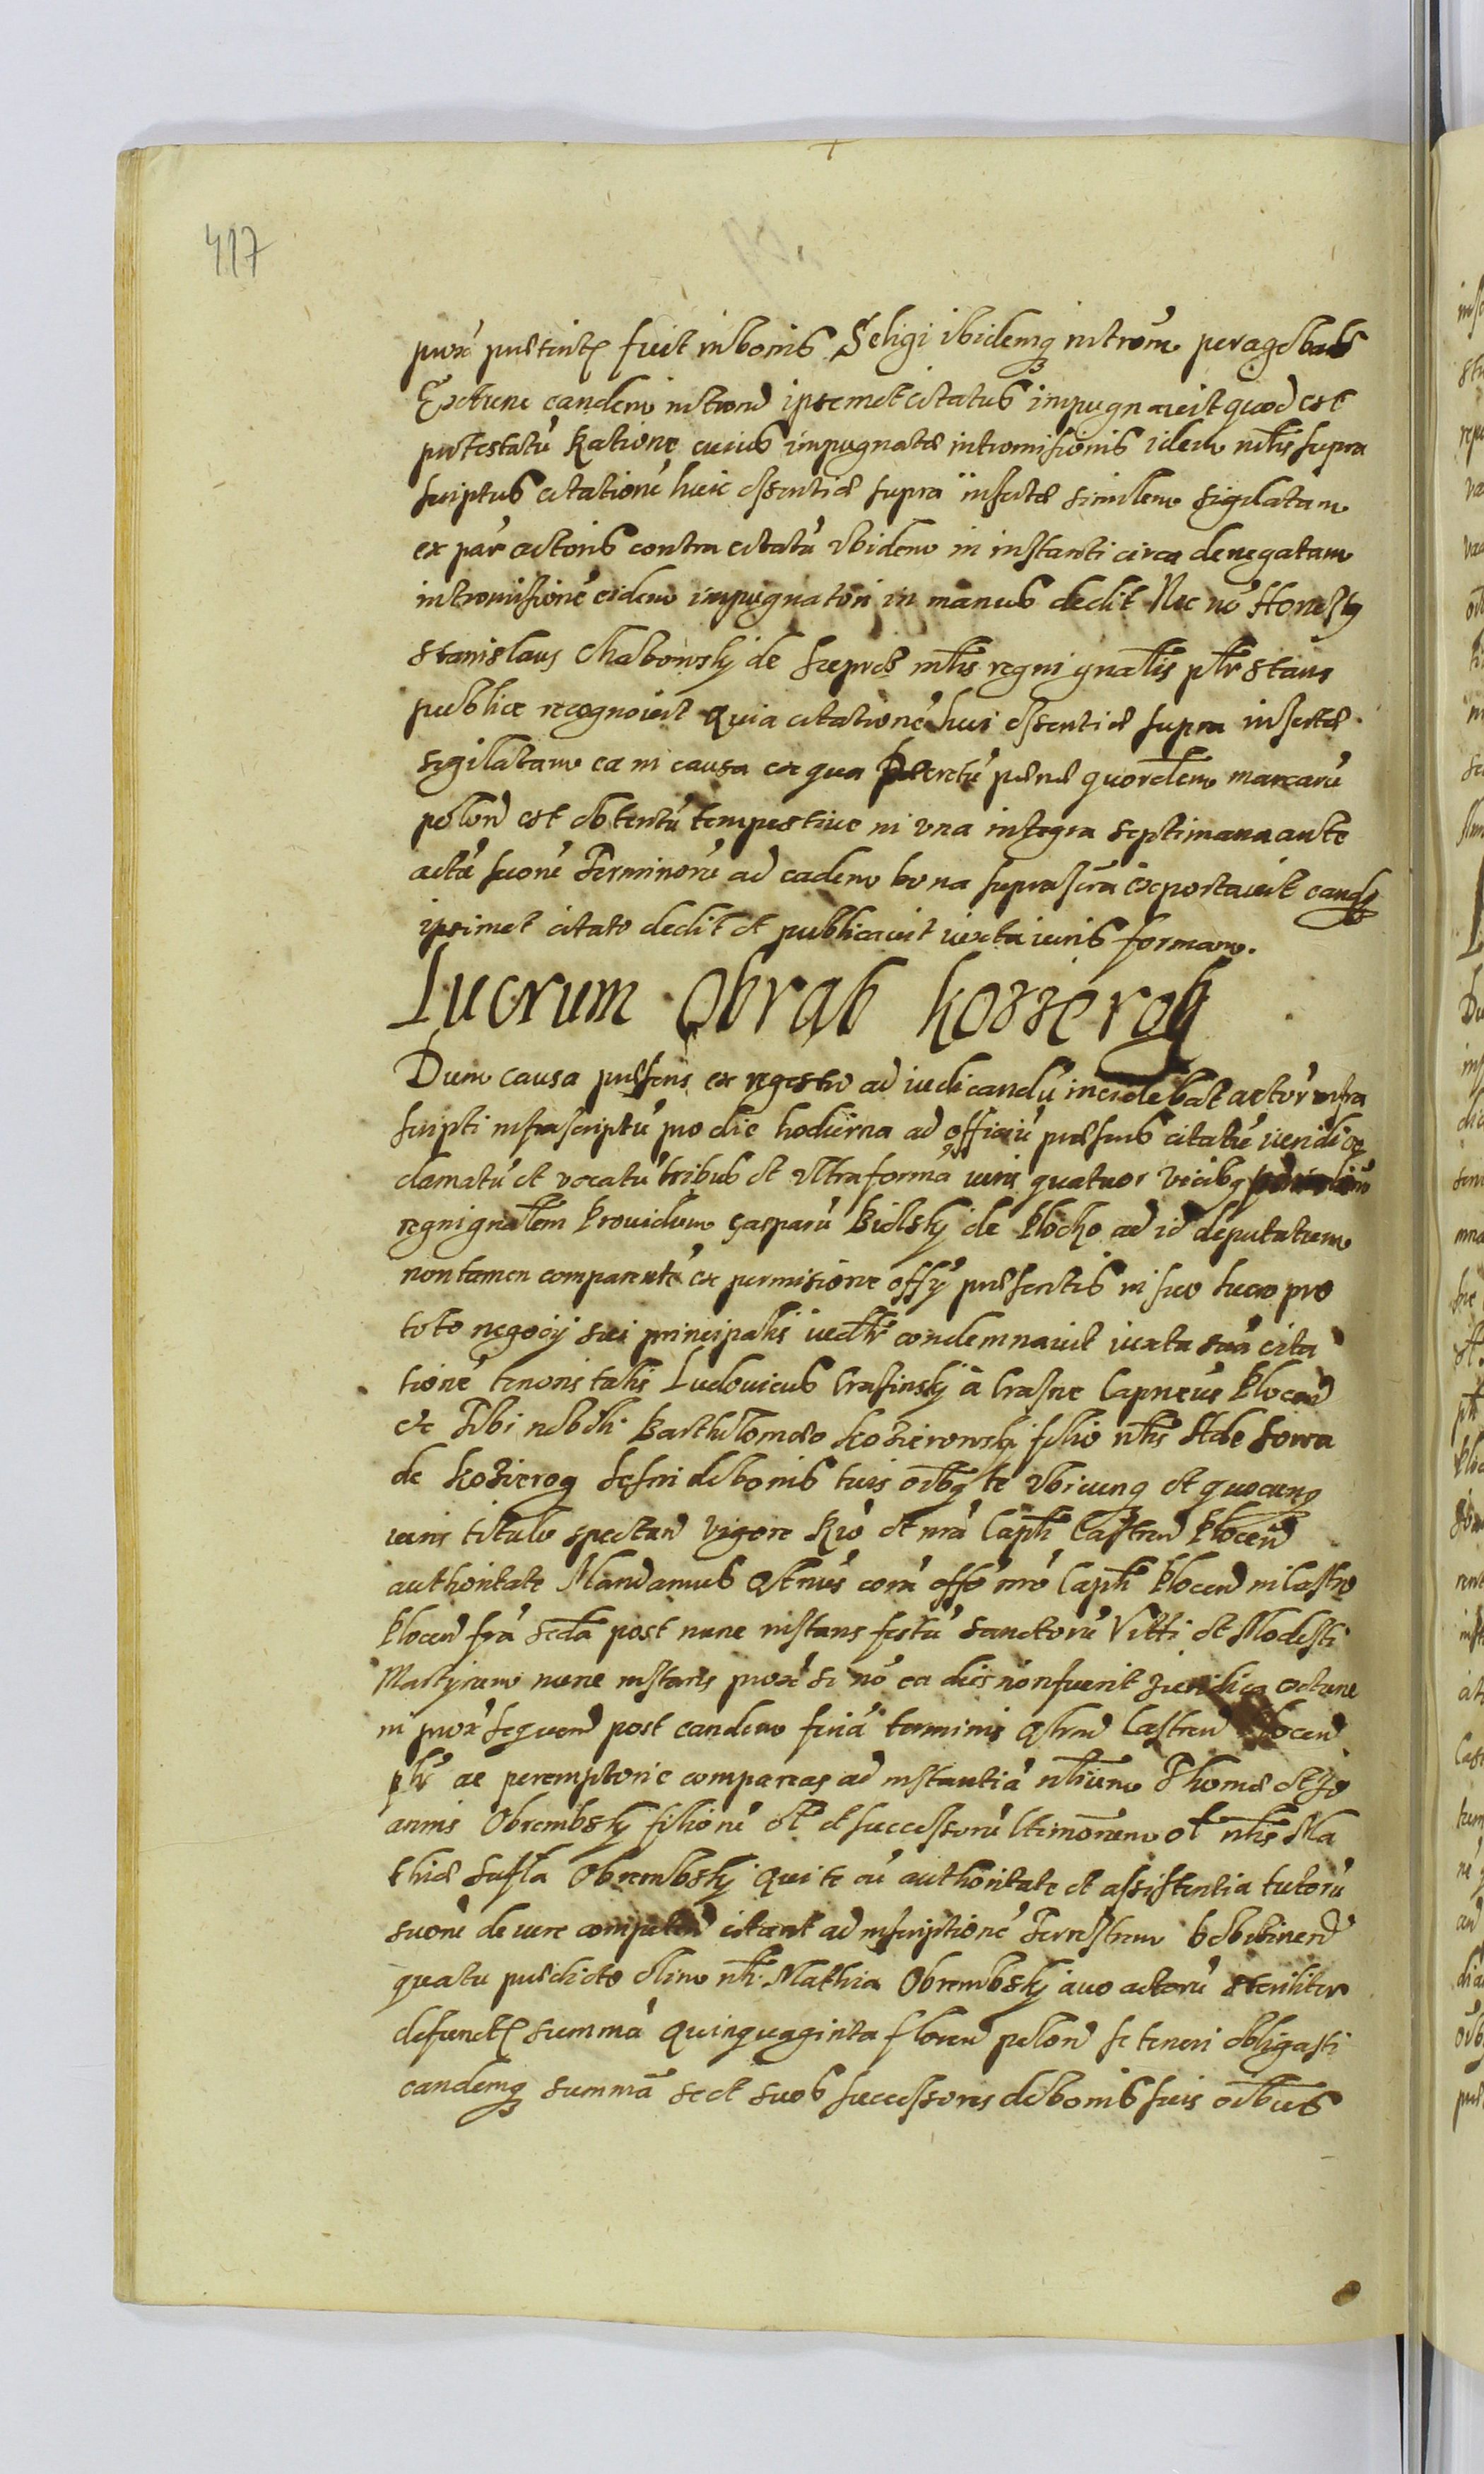 417
prox præterit fuit in bonis Seligi ibidemq introm peragebat
Extunc eandem introm ipsemet citatus impugnauit quod est
protestatu Ratione cuius impugnatæ intromissionis idem mlis supra
scriptus citatione huic essentiæ supra insertæ similem sigilatam
ex par actoris contra citatu ibidem in instanti circa denegatam
intromissione eidem impugnatori in manus dedit Nec no Honestus
Stanislaus Chabowskj de mlis regni gnalis plr stans
publice recognouit Quia citatione hui essentiæ supra insertæ
sigilatam ea in causa ex qua Decretu pænæ quordem marcaru
polon est obtentu tempestiue in vna integra septimana ante
acta suoru Terminoru ad eadem bona suprascra exportauit eandq
ipsimet citato dedit et publicauit iuxta iuris formam.
Lucrum Obrąb Kozierog
Dum causa præsens ex regestro ad iudicandu incidebat actor infra
scripti infrascriptu pro die hodierna ad officiu præsens citatu iuridice
clamatu et vocatu tribus et vltra forma iuris quatuor vicibq
regni gnalem Prouidum Casparu Bielskj de Plocko ad id deputatum
non tamen comparente ex permisione offy præsentis in suo lucro pro
toto negocij sui principalis iudlr condemnauit iuxta sua cita
tione tenoris talis Ludouicus Crasinskj à Crasne Capneus Plocen
etc Tibi nobili Bartholomæo Kozierowskj filio nlis
de Kozierog de bonis tuis oibq te vbicunq et quocunq
iuris titulo spectan vigore Rio et nra Capli Castren Plocen
authoritate Mandamus Qtnus cora offo nro Capli Plocen in Castro
Plocen fra scda post nunc instans festu Sanctoru Vitti et Modesti
Martyrum nunc instans prox si no ea dies non fuerit Juridica extunc
in prox sequen post eandem feria terminis Qhrn Castren Plocen
plr ac peremptorie compareas ad instantia nlium Thomæ et Jo
annis Obrembskj filioru et successoru ltimorum ol nlis Ma
thiæ Obrembskj Qui te cu authoritate et assistentia tutoru
suoru de iure competen citant ad inscriptione Terrestrem
quatu prædicto olim nli Mathia Obrembskj auo actoru steriliter
defunct summa Quinquaginta floren polon se teneri obligasti
eandemq summa se et suos successores de bonis suis oibus